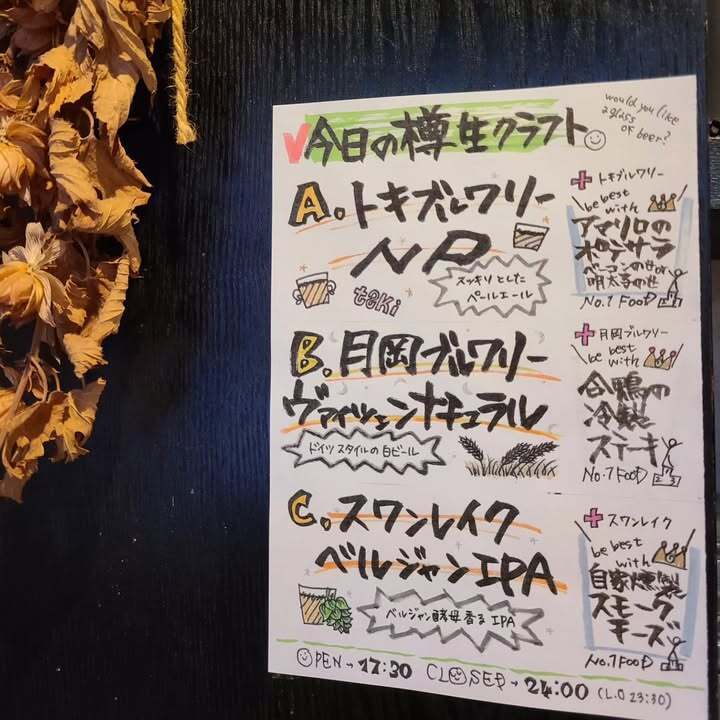 今日の樽生クラフト
would you like
a glass
of beer?
A. トキブルワリー
NP
スッキリとした
ペールエール
toki
+ トキブルワリー
be best
with
アマリロの
ポテサラ
ベーコンのせor
明太子のせ
No.1 FOOD
B. 月岡ブルワリー
ヴァイツェンナチュラル
ドイツスタイルの白ビール
+ 月岡ブルワリー
be best
with
合鴨の
冷製
ステーキ
No.1 FOOD
C. スワンレイク
ベルジャンIPA
ベルジャン酵母香るIPA
+ スワンレイク
be best
with
自家燻製
スモーク
チーズ
No.1 FOOD
OPEN→17:30 CLOSED→24:00 (L.O 23:30)